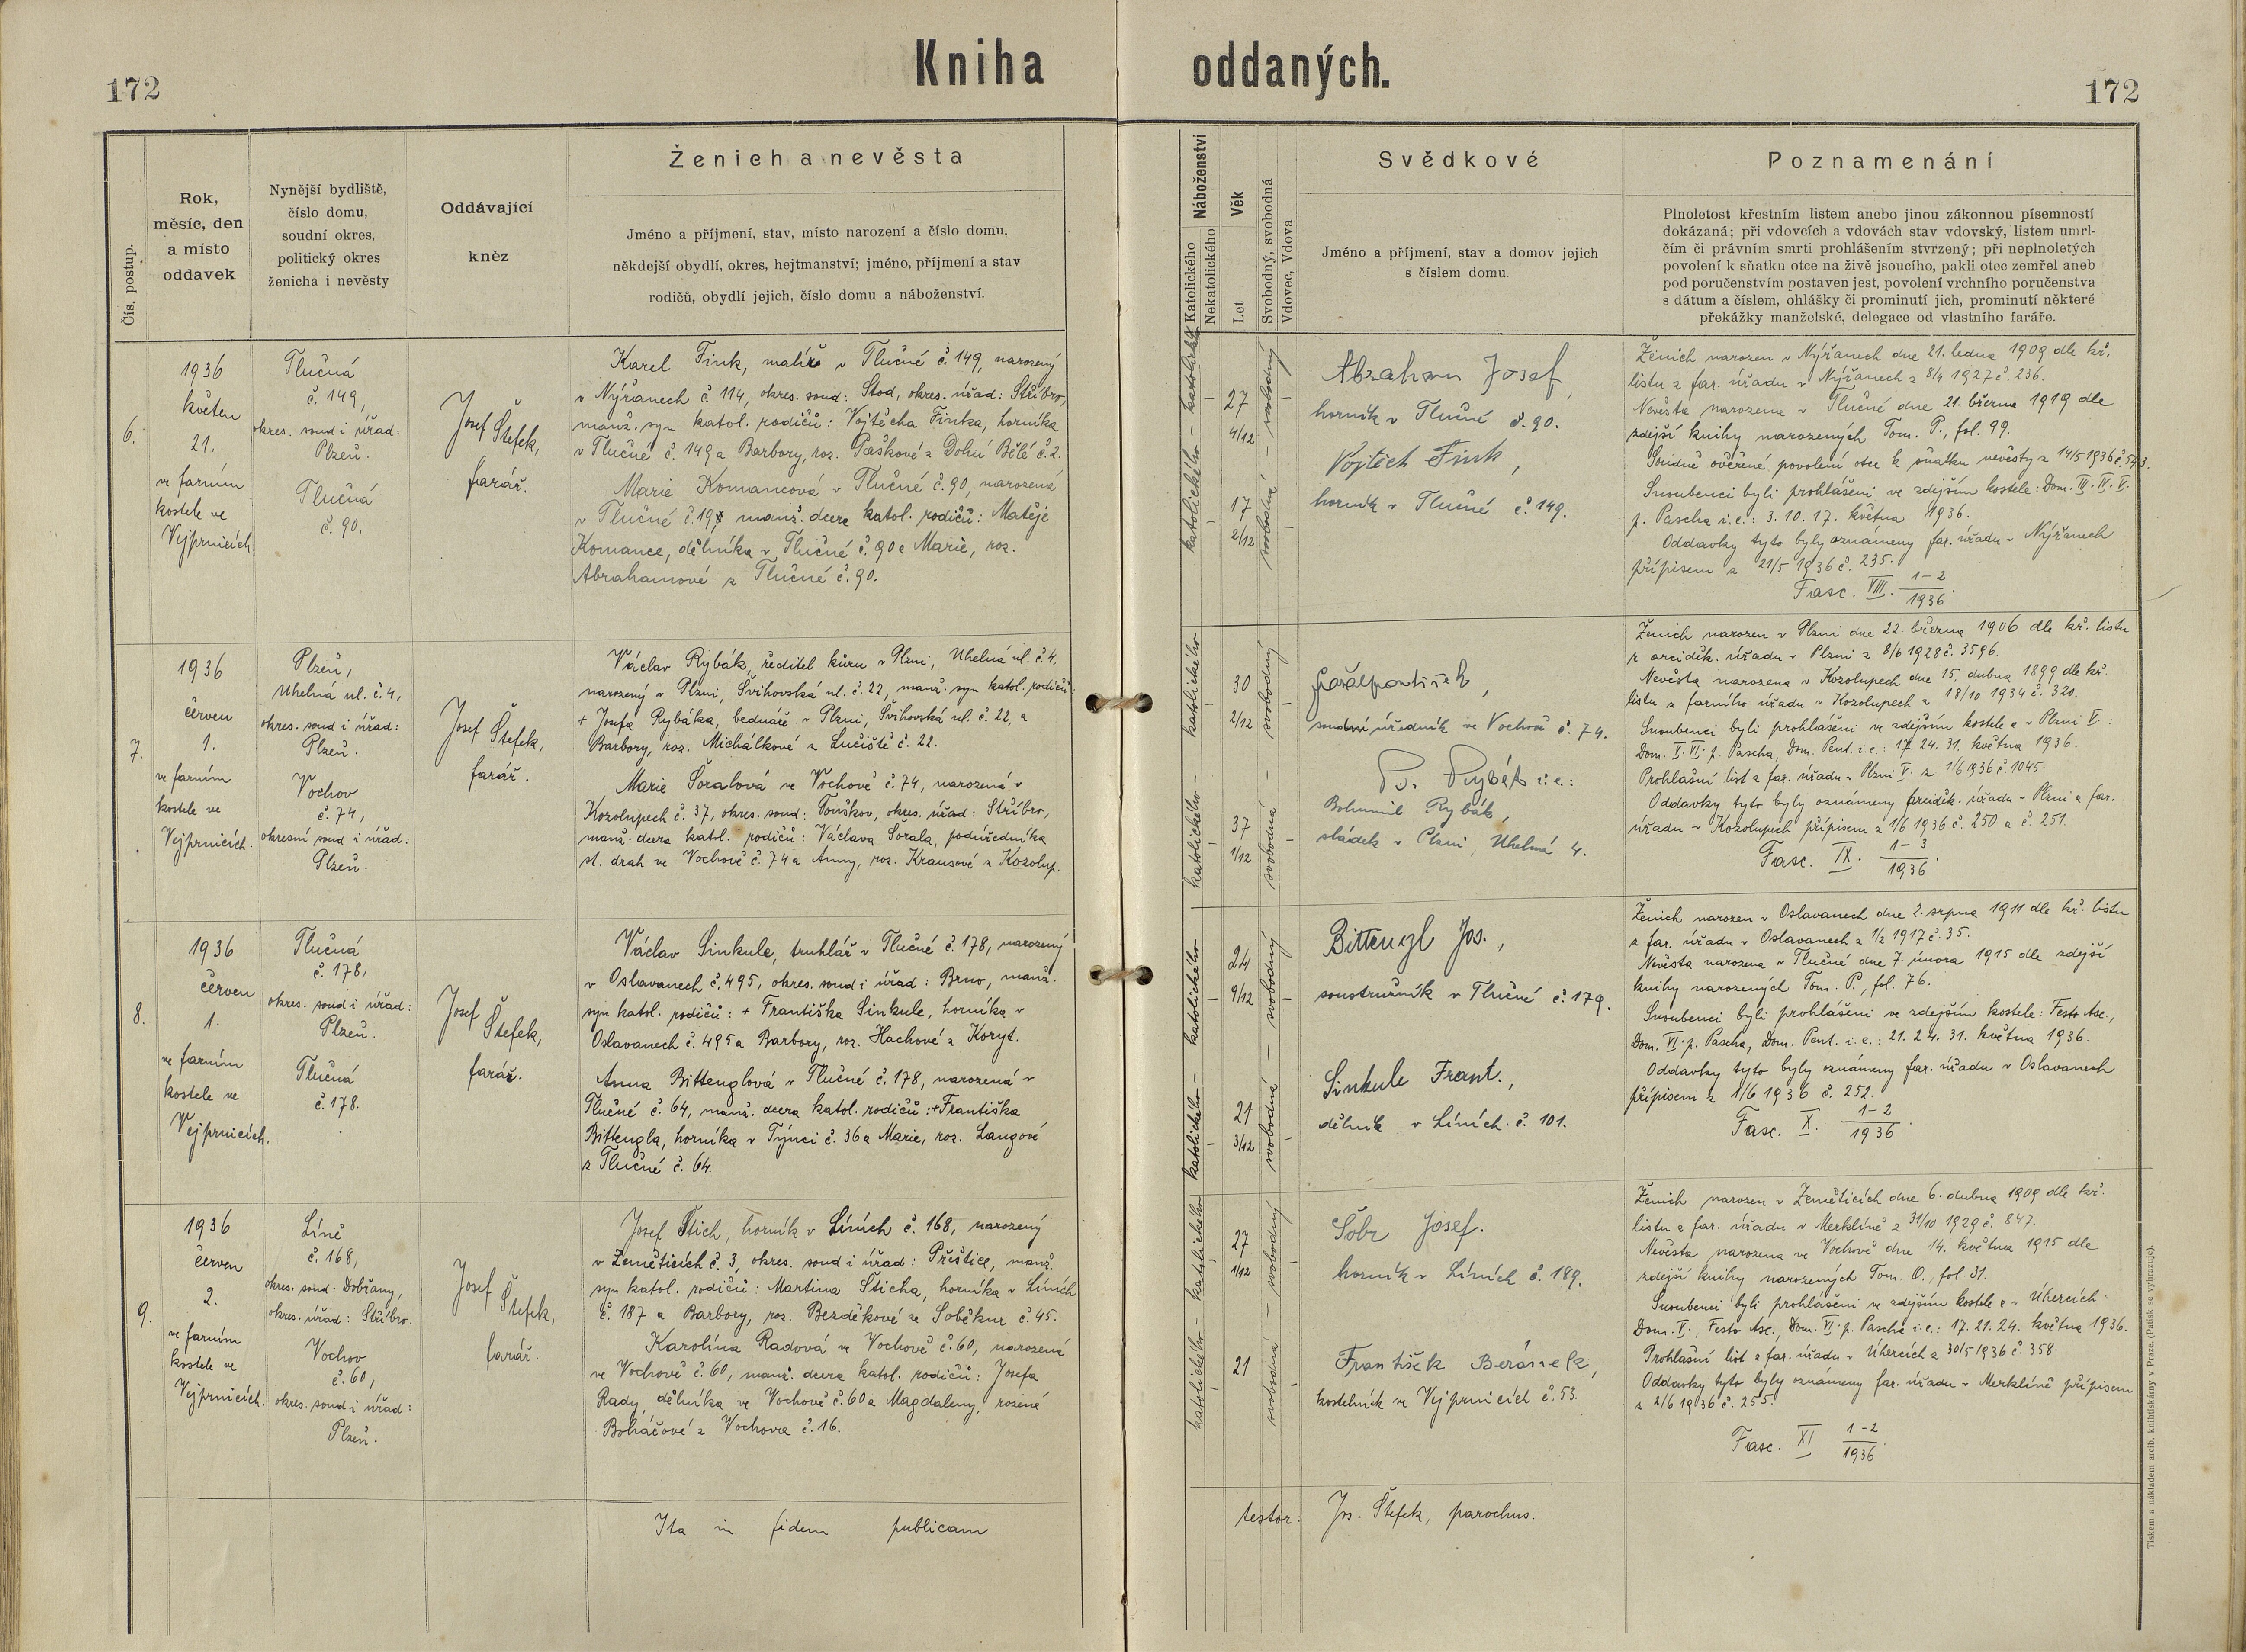 172
Kniha oddaných.
172
Čís. postup.
Rok,
měsíc, den
a místo
oddavek
Nynější bydliště,
číslo domu,
soudní okres,
politický okres
ženicha i nevěsty
Oddávající
kněz
Ženich a nevěsta
Jméno a příjmení, stav, místo narození a číslo domu,
někdejší obydlí, okres, hejtmanství; jméno, příjmení a stav
rodičů, obydlí jejich, číslo domu a náboženství.
Náboženství
Katolického
Nekatolického
Věk
Let
Svobodný, svobodná
Vdovec, Vdova
Svědkové
Jméno a příjmení, stav a domov jejich
s číslem domu.
Poznamenání
Plnoletost křestním listem anebo jinou zákonnou písemností
dokázaná; při vdovcích a vdovách stav vdovský, listem umrl-
čím či právním smrti prohlášením stvrzený; při neplnoletých
povolení k sňatku otce na živě jsoucího, pakli otec zemřel aneb
pod poručenstvím postaven jest, povolení vrchního poručenstva
s dátum a číslem, ohlášky či prominutí jich, prominutí některé
překážky manželské, delegace od vlastního faráře.
6.
1936
květen
21.
ve farním
kostele ve
Vejprnicích.
Tlučná
č. 149,
okres. soud i úřad:
Plzeň.
Tlučná
č. 90.
Josef Štefek,
farář.
Karel Fink, malíř v Tlučné č. 149, narozený
v Nýřanech č. 114, okres. soud: Stod, okres. úřad: Stříbro,
manž. syn katol. rodičů: Vojtěcha Finka, horníka
v Tlučné č. 149 a Barbory, roz. Paškové z Dolní Bělé č. 2.
Marie Komancová v Tlučné č. 90, narozená
v Tlučné č. 19, manž. dcera katol. rodičů: Matěje
Komance, dělníka v Tlučné č. 90 a Marie, roz.
Abrahamové z Tlučné č. 90.
katolického - katolického
27
4/12
17
2/12
svobodná - svobodný
Abraham Josef,
horník v Tlučné č. 90.
Vojtěch Fink,
horník v Tlučné č. 149.
Ženich narozen v Nýřanech dne 21. ledna 1909 dle kř.
listu z far. úřadu v Nýřanech z 8/4 1927 č. 236.
Nevěsta narozena v Tlučné dne 21. března 1919 dle
zdejší knihy narozených Tom. P., fol. 99.
Soudně ověřené povolení otce k sňatku nevěsty z 14/5 1936
Snoubenci byli prohlášeni ve zdejším kostele: Dom. III. IV. V.
p. Pascha i. e.: 3. 10. 17. května 1936.
Oddavky tyto byly oznámeny far. úřadu v Nýřanech
přípisem z 21/5 1936 č. 235.
Fasc. VIII. 1-2/1936.
7.
1936
červen
1.
ve farním
kostele ve
Vejprnicích.
Plzeň,
Uhelná ul. č. 4,
okres. soud i úřad:
Plzeň.
Vochov
č. 74,
okresní soud i úřad:
Plzeň.
Josef Štefek,
farář.
Václav Rybák, ředitel kůru v Plzni, Uhelná ul. č. 4,
narozený v Plzni, Švihovská ul. č. 22, manž. syn katol. rodičů:
+ Josefa Rybáka, bednáře v Plzni, Švihovská ul. č. 22, a
Barbory, roz. Michálkové z Lučiště č. 22.
Marie Šoralová ve Vochově č. 74, narozená v
Kozolupech č. 37, okres. soud: Touškov, okres. úřad: Stříbro,
manž. dcera katol. rodičů: Václava Šorala, podúředníka
st. drah ve Vochově č. 74 a Anny, roz. Krausové z Kozolup.
katolického - katolického
30
2/12
37
1/12
svobodná - svobodný
soudní úředník ve Vochově č. 74.
B. Rybák i. e.:
Bohumil Rybák,
sládek v Plzni, Uhelná 4.
Ženich narozen v Plzni dne 22. března 1906 dle kř. listu
z arciděk. úřadu v Plzni z 8/6 1928 č. 3596.
Nevěsta narozena v Kozolupech dne 15. dubna 1899 dle kř.
listu z farního úřadu v Kozolupech z 18/10 1934 č. 320.
Snoubenci byli prohlášeni ve zdejším kostele a v Plzni V:
Dom. V. VI. p. Pascha, Dom. Pent. i. e.: 17. 24. 31. května 1936.
Prohlašní list z far. úřadu v Plzni V. z 1/6 1936 č. 1045.
Oddavky tyto byly oznámeny arciděk. úřadu v Plzni a far.
úřadu v Kozolupech přípisem z 1/6 1936 č. 250 a č. 251.
Fasc. IX. 1-3/1936.
8.
1936
červen
1.
ve farním
kostele ve
Vejprnicích.
Tlučná
č. 178,
okres. soud i úřad:
Plzeň.
Tlučná
č. 178.
Josef Štefek,
farář.
Václav Sinkule, truhlář v Tlučné č. 178, narozený
v Oslavanech č. 495, okres. soud i úřad: Brno, manž.
syn katol. rodičů: + Františka Sinkule, horníka v
Oslavanech č. 495 a Barbory, roz. Hachové z Koryt.
Anna Bittenglová v Tlučné č. 178, narozená v
Tlučné č. 64, manž. dcera katol. rodičů: + Františka
Bittengla, horníka v Týnci č. 36 a Marie, roz. Langové
z Tlučné č. 64.
katolického - katolického
24
9/12
21
3/12
svobodná - svobodný
Bittengl Jos.,
soustružník v Tlučné č. 179.
Sinkule Frant.,
dělník v Líních č. 101.
Ženich narozen v Oslavanech dne 2. srpna 1911 dle kř. listu
z far. úřadu v Oslavanech z 1/2 1917 č. 35.
Nevěsta narozena v Tlučné dne 7. února 1915 dle zdejší
knihy narozených Tom. P., fol. 76.
Snoubenci byli prohlášeni ve zdejším kostele: Festo Asc.,
Dom. VI. p. Pascha, Dom. Pent. i. e.: 21. 24. 31. května 1936.
Oddavky tyto byly oznámeny far. úřadu v Oslavanech
přípisem z 1/6 1936 č. 252.
Fasc. X. 1-2/1936.
9.
1936
červen
2.
ve farním
kostele ve
Vejprnicích.
Líně
č. 168,
okres. soud: Dobřany,
okres. úřad: Stříbro.
Vochov
č. 60,
okres. soud i úřad:
Plzeň.
Josef Štefek,
farář.
Josef Štich, horník v Líních č. 168, narozený
v Žeměticích č. 3, okres. soud i úřad: Přeštice, manž.
syn katol. rodičů: Martina Šticha, horníka v Líních
č. 187 a Barbory, roz. Bezděkové ze Soběkur č. 45.
Karolína Radová ve Vochově č. 60, narozená
ve Vochově č. 60, manž. dcera katol. rodičů: Josefa
Rady, dělníka ve Vochově č. 60 a Magdaleny, rozené
Boháčové z Vochova č. 16.
katolického - katolického
27
1/12
21
svobodná - svobodný
Šobr Josef.
horník v Líních č. 189.
František Beránek,
kostelník ve Vejprnicích č. 53.
Ženich narozen v Žeměticích dne 6. dubna 1909 dle kř.
listu z far. úřadu v Merklíně z 31/10 1929 č. 847.
Nevěsta narozena ve Vochově dne 14. května 1915 dle
zdejší knihy narozených Tom. O., fol 31.
Snoubenci byli prohlášeni ve zdejším kostele a v Úhercích:
Dom. V., Festo Asc., Dom. VI. p. Pascha i. e.: 17. 21. 24. května 1936.
Prohlašní list z far. úřadu v Úhercích z 30/5 1936 č. 358.
Oddavky tyto byly oznámeny far. úřadu v Merklíně přípisem
z 2/6 1936 č. 255.
Fasc. XI 1-2/1936.
Ita in fidem publicam testor: Jos. Štefek, parochus.
Tiskem a nákladem arcib. knihtiskárny v Praze. (Patisk se vyhrazuje).